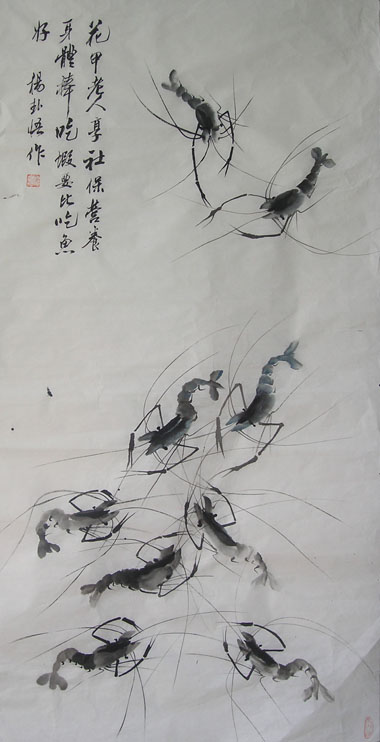 花甲老人享社保营養
身體棒吃蝦要比吃魚
好
楊卦悟作